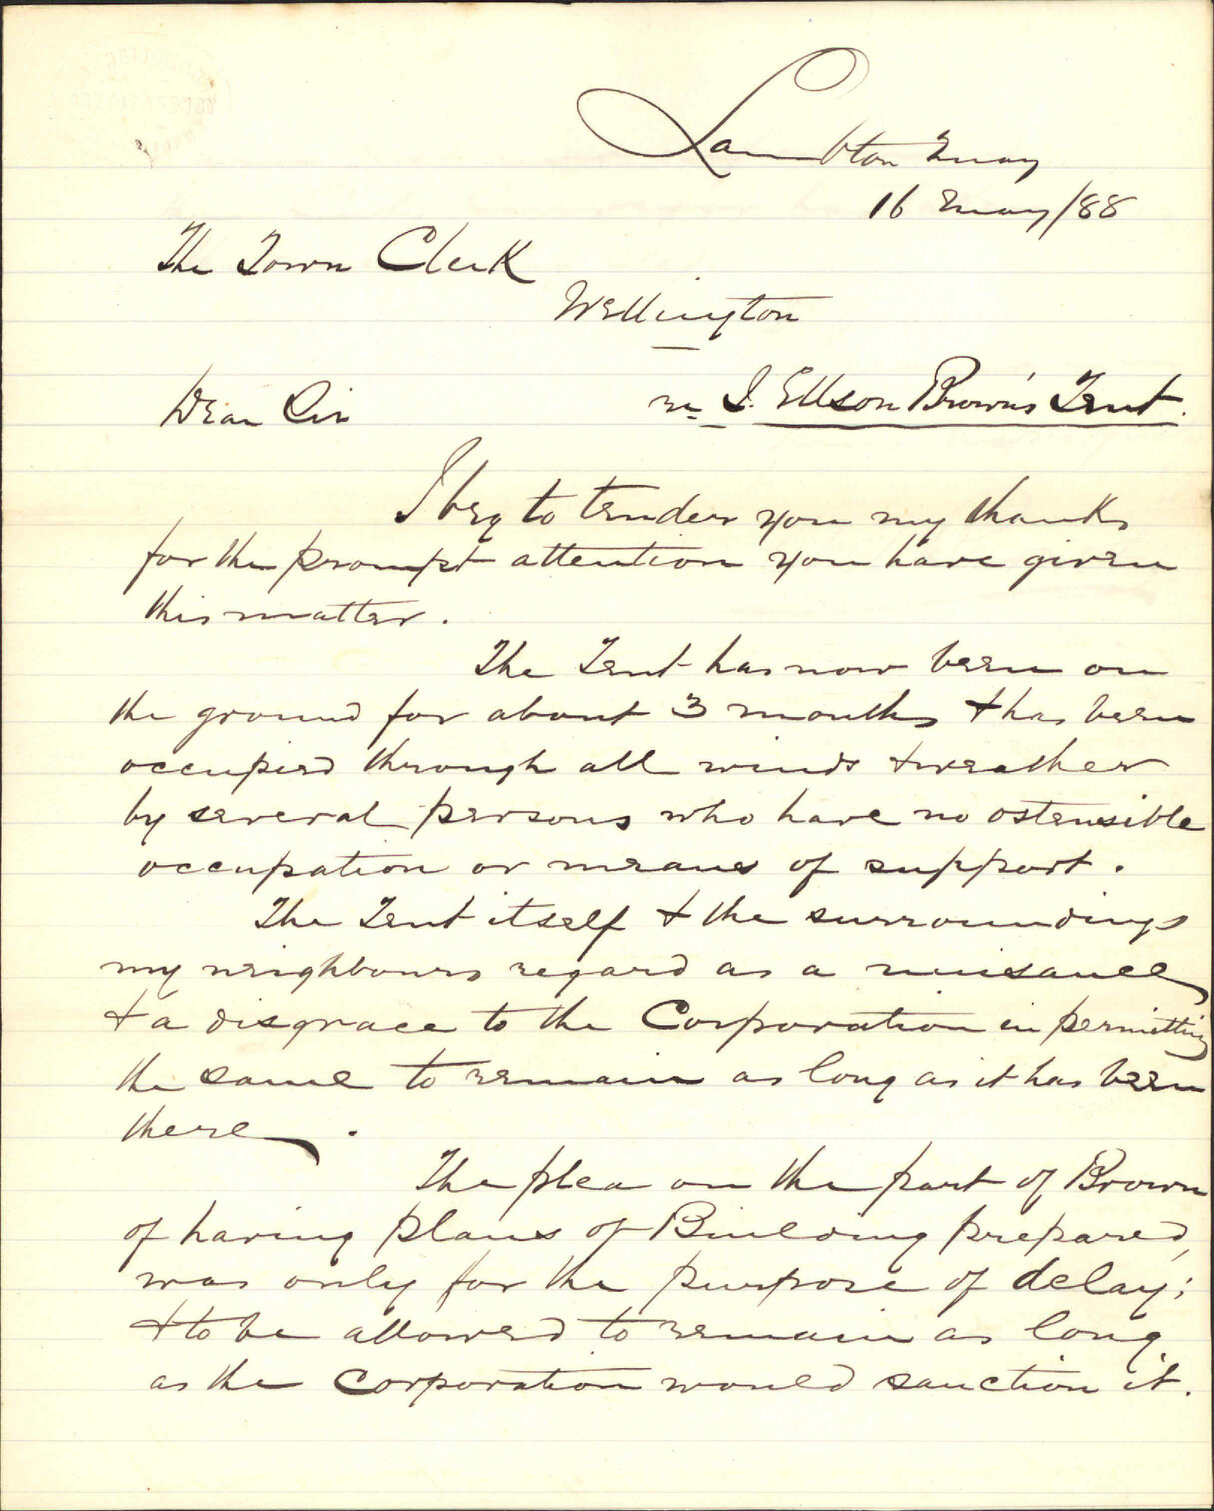 Lambton Quay
16 May/88
The Town Clerk
Wellington
Dear Sir
re J. Ellson Brown's Tent.
I beg to tender you my thanks
for the prompt attention you have given
this matter.
The Tent has now been on
the ground for about 3 months & has been
occupied through all winds & weather
by several persons who have no ostensible
occupation or means of support.
The Tent itself & the surroundings
my neighbours regard as a nuisance
& a disgrace to the Corporation in permitting
the same to remain as long as it has been
there.
The plea on the part of Brown
of having plans of Building prepared,
was only for the purpose of delay;
& to be allowed to remain as long
as the Corporation would sanction it.